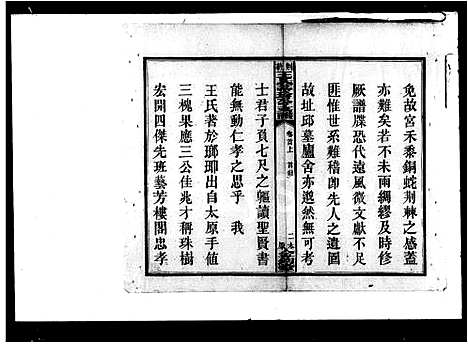 免故宮禾黍銅蛇荆棘之感蓋
亦難矣若不未雨綢繆及時修
厥譜牒恐代遠風微文獻不足
匪惟世系難稽卽先人之遺圖
故址邱墓廬舍亦邈然無可考
卷首上
士君子負七尺之軀讀聖賢書
能無動仁孝之思乎 我
王氏著於瑯卽出自太原手値
三槐果應三公佳兆才稱珠樹
宏開四傑先班藝芳樓閣忠孝